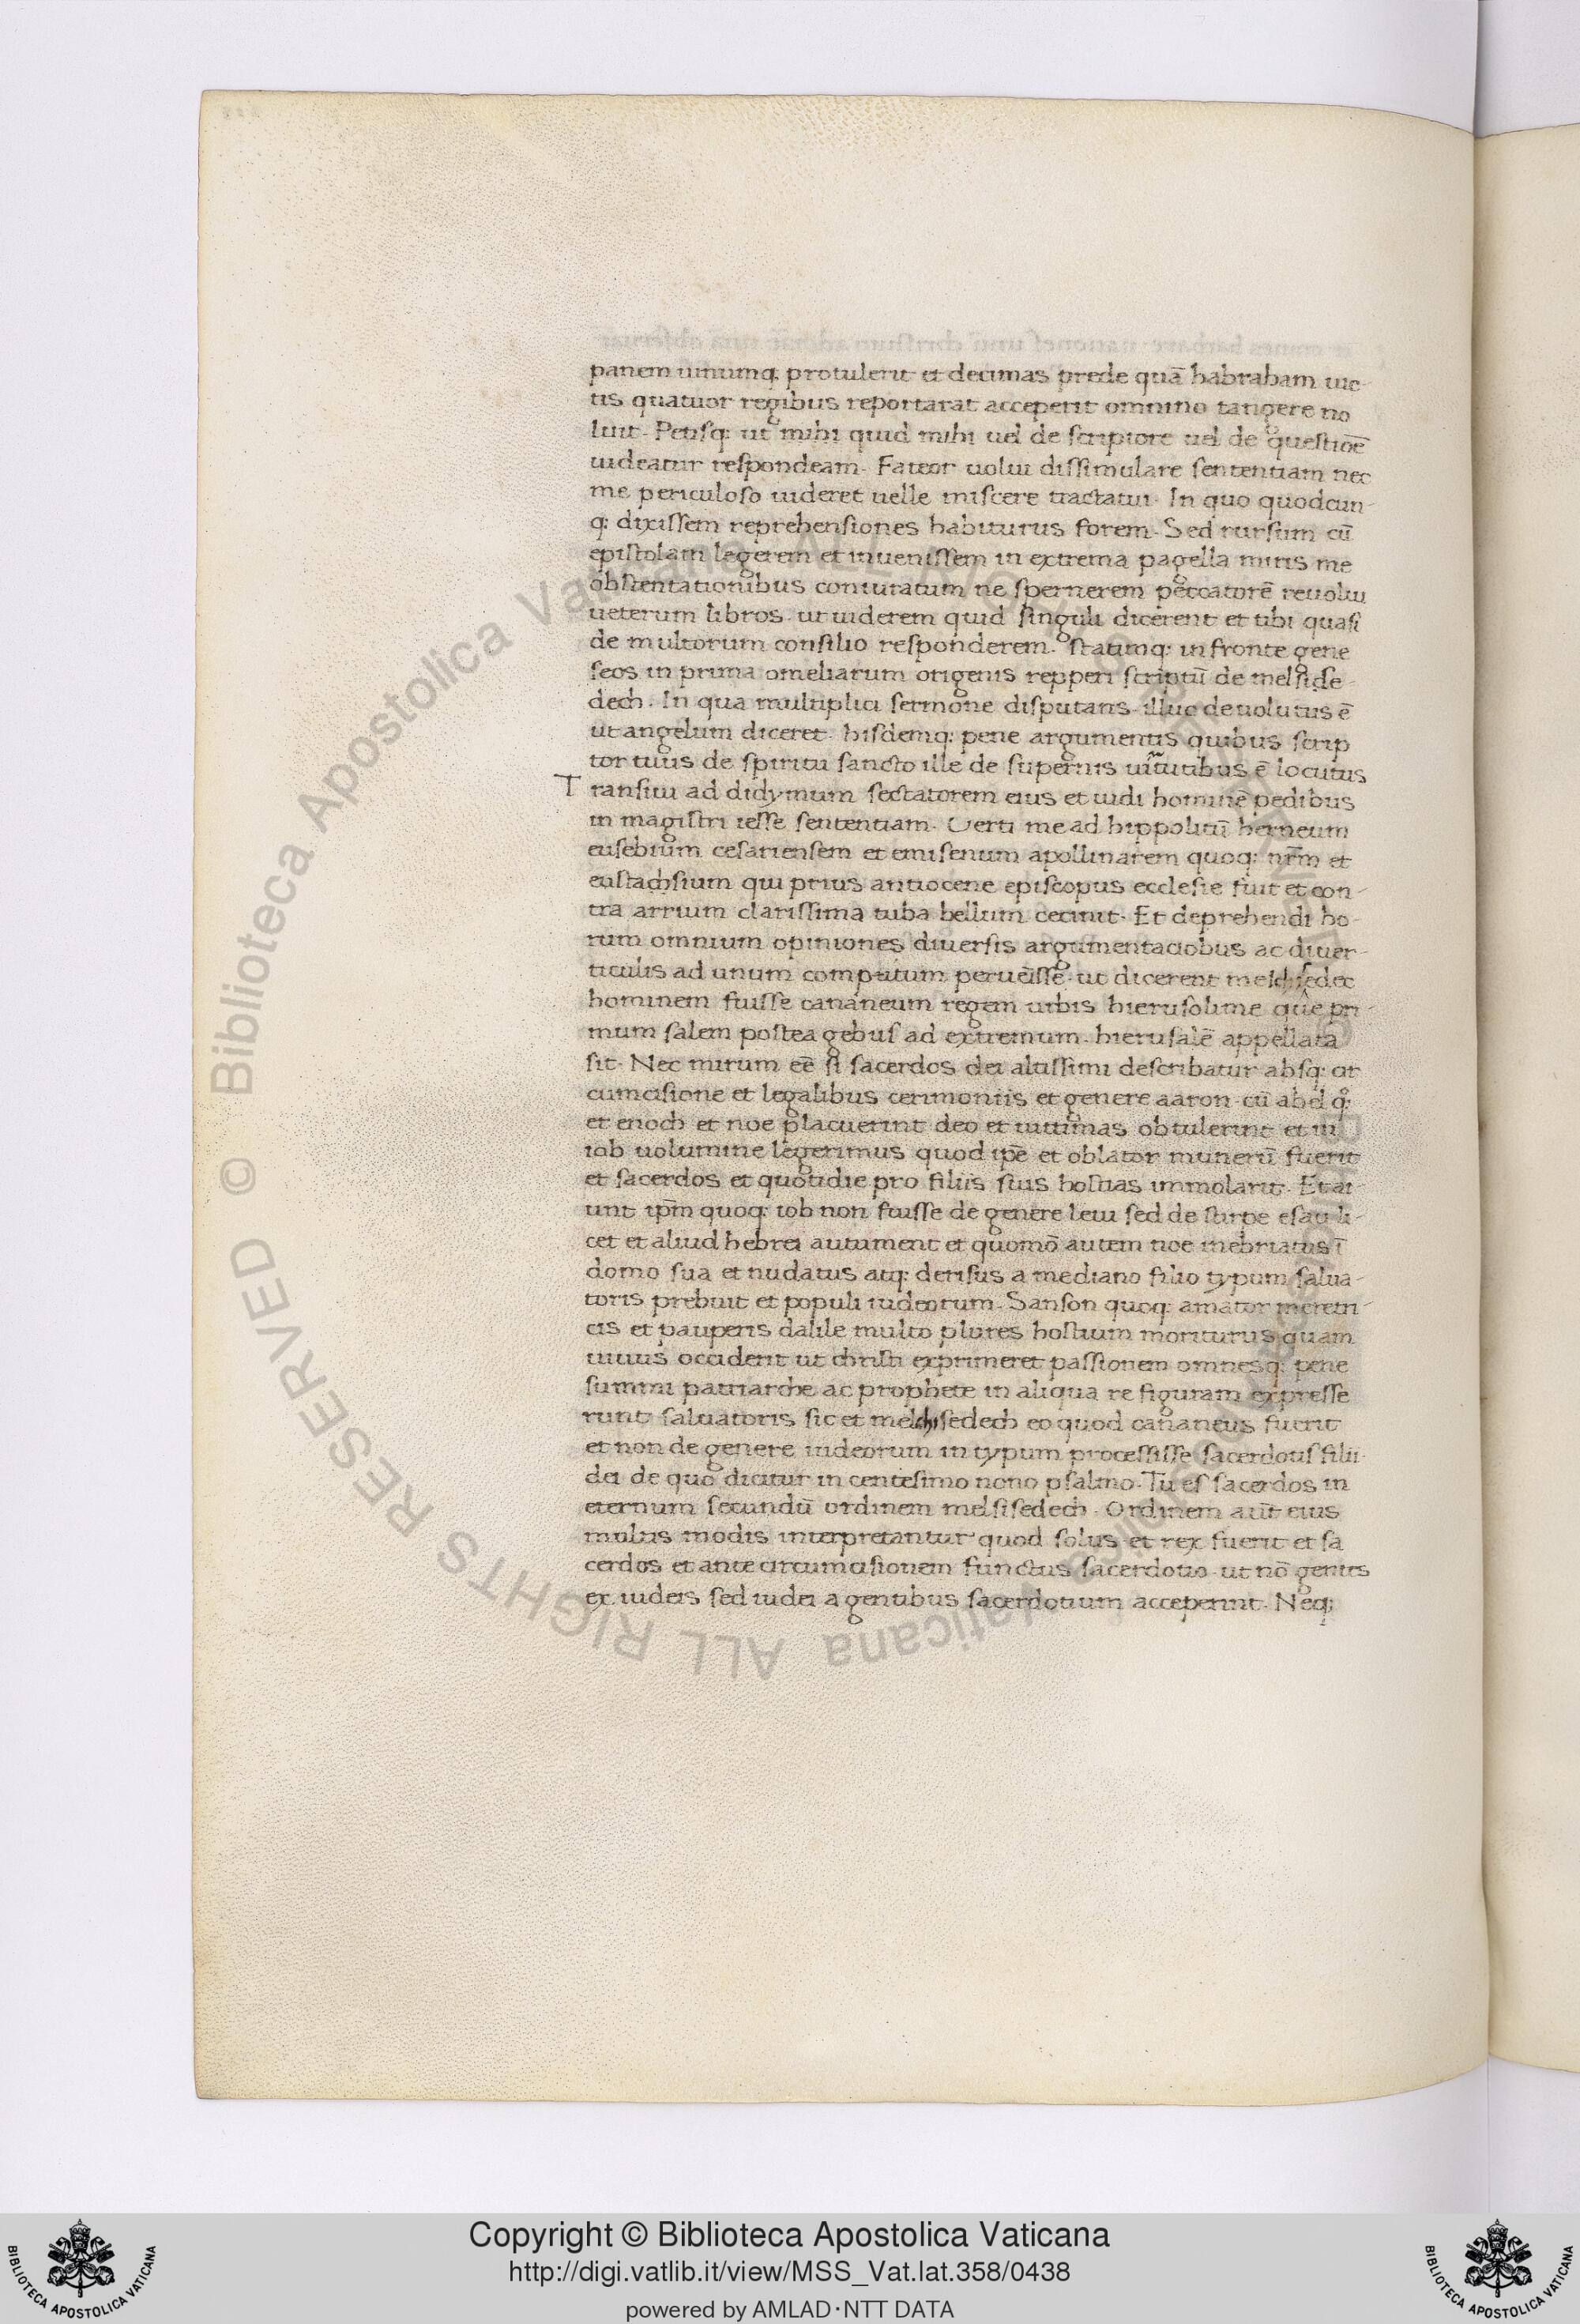 panem uinumq; protulerit et decimas prede quā habraham uic-
tis quatuor regibus reportarat acceperit omnino tangere no
luit. Petisq: ut mihi quid mihi uel de scriptore uel de questiōe
uideatur respondeam. Fateor uolui dissimulare sententiam nec
me periculoso uideret uelle miscere tractatui. In quo quodcun-
q: dixissem reprehensiones habiturus forem. Sed rursum cū
epistolam legerem et inuenissem in extrema pagella miris me
obstentationibus coniuratum ne spernerem peccatorē reuolui
ueterum libros. ut uiderem quid singuli dicerent et tibi quasi
de multorum consilio responderem. statimq: in fronte gene
seos in prima omeliarum origenis repperi scriptū de melsise-
dech. In qua multiplici sermone disputans. illuc deuolutus ē
ut angelum diceret. hisdemq: pene argumentis quibus scrip
tor tuus de spiritu sancto ille de supernis uirtutibus ē locutus
Transiui ad didymum sectatorem eius et uidi hominē pedibus
in magistri iesse sententiam. Verti me ad hippolitū herneum
eusebium cesariensem et emisenum apollinarem quoq: nr̄m et
eustachsium qui prius antiocene episcopus ecclesie fuit et con-
tra arrium clarissima tuba bellum cecinit. Et deprehendi ho-
rum omnium opiniones diuersis argumentaciobus ac diuer-
ticulis ad unum computum peruēisse. ut dicerent melchisedec
hominem fuisse cananeum regem urbis hierusolime que pri-
mum salem postea gebus ad extremum. hierusalē appellata
sit. Nec mirum eē si sacerdos dei altissimi describatur absq: cir
cumcisione et legalibus cerimoniis et genere aaron. cū abel q̊:
et enoch et noe placuerint deo et uittimas obtulerint et in
iob uolumine legerimus quod ip̄e et oblator munerū fuerit
et sacerdos et quotidie pro filiis suis hostias immolarit. Et ai-
unt ip̄m quoq: iob non fuisse de genere leui sed de stirpe esau li-
cet et aliud hebrei autument et quomō autem noe inebriatus ī
domo sua et nudatus atq: derisus a mediano filio typum salua-
toris prebuit et populi iudeorum. Sanson quoq: amator meretri-
cis et pauperis dalile multo plures hostium moriturus quam
uiuus occiderit ut christi exprimeret passionem omnesq: pene
summi patriarche ac prophete in aliqua re figuram expresse
runt saluatoris sic et melchisedech eo quod cananeus fuerit
et non de genere iudeorum in typum processisse sacerdotis filii
dei de quo dicitur in centesimo nono psalmo. Tu es sacerdos in
eternum secundū ordinem melsisedech. Ordinem aūt eius
multis modis interpretantur quod solus et rex fuerit et sa
cerdos et ante circumcisionem functus sacerdotio. ut nō gentes
ex iudeis sed iudei a gentibus sacerdotium acceperint. Neq;
© Biblioteca Apostolica Vaticana ALL RIGHTS RESERVED
Copyright © Biblioteca Apostolica Vaticana
http://digi.vatlib.it/view/MSS_Vat.lat.358/0438
powered by AMLAD·NTT DATA
BIBLIOTECA APOSTOLICA VATICANA
BIBLIOTECA APOSTOLICA VATICANA